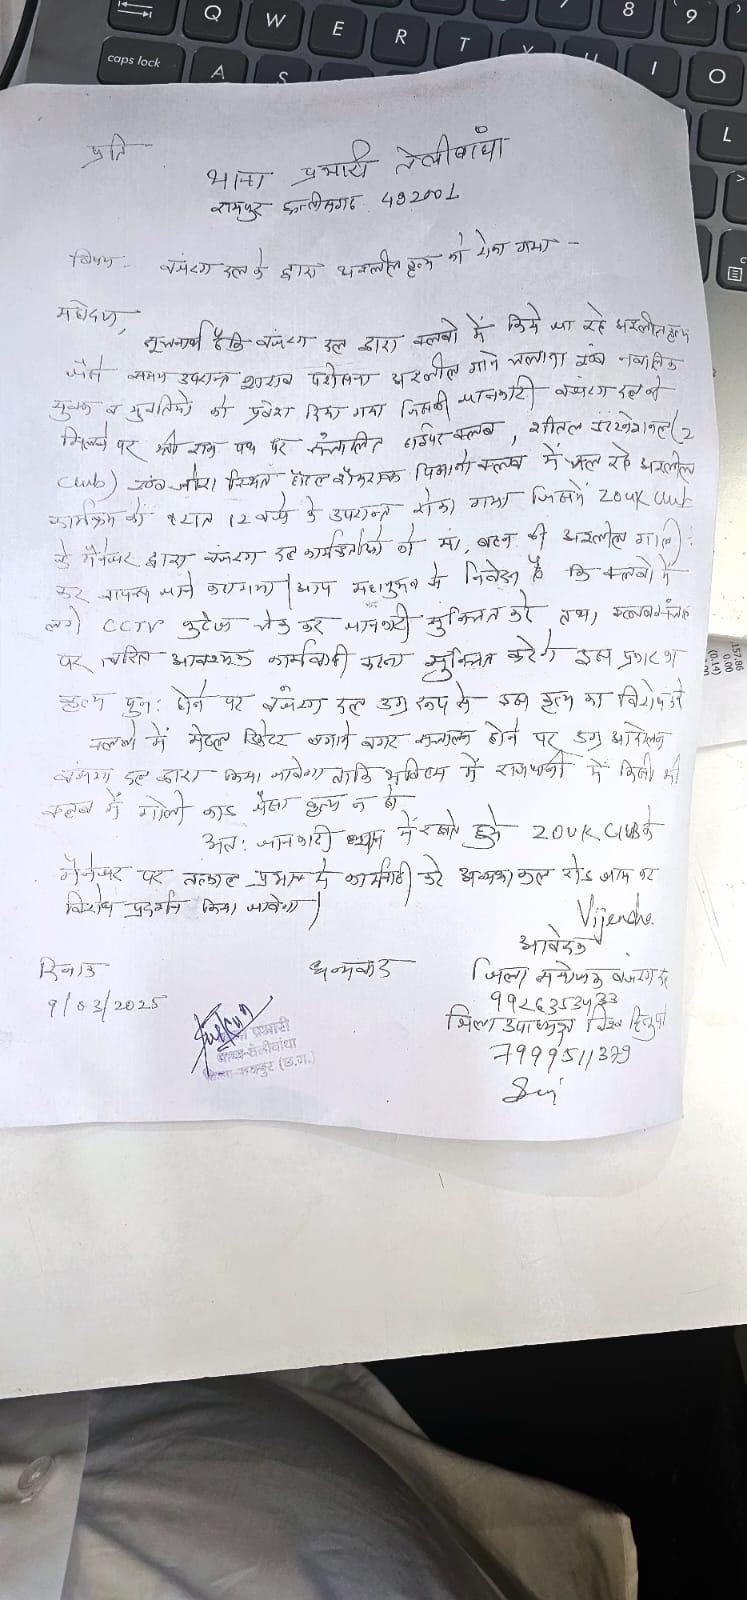 प्रति
थाना प्रभारी तेलीबांधा
रायपुर छत्तीसगढ़ 492001
विषय:- बजरंग दल के द्वारा अश्लील कृत्य को रोका गया -
महोदय,
सूचनार्थ है कि बजरंग दल द्वारा क्लबो में किये जा रहे अश्लील कृत्य
जैसे समय उपरान्त शराब परोसना अश्लील गाने चलाना एवं नबालिक
युवक व युवतियों को प्रवेश दिया गया जिसकी जानकारी बजरंग दल को
मिलने पर श्री राम पथ पर संचालित हाईपर क्लब, शीतल इंटरनेशनल (2
Club) एवं जोरा स्थित होटल पियानो क्लब में चल रहे अश्लील
कार्यक्रम को रात 12 बजे के उपरान्त रोका गया जिसमें ZOUK Club
के मैनेजर द्वारा बजरंग दल कार्यकर्ताओ को मां, बहन की अश्लील गाली
कर वापस जाने कहागया। आप महानुभव से निवेदन है कि क्लबो में
लगे CCTV फुटेज चेक कर जानकारी सुनिश्चित करे तथा क्लब संचालक
पर त्वरित आवश्यक कार्यवाही करना सुनिश्चित करेगे इस प्रकार का
कृत्य पुन: होने पर बजरंग दल उग्र रूप से इस कृत्य का विरोध करे
क्लबो में मेटल डिटेक्टर लगाये बगर संचालन होने पर उग्र आंदोलन
बजरंग दल द्वारा किया जावेगा ताकि भविष्य में राजधानी में किसी भी
क्लब में गोली कांड जैसा कृत्य न हो
अत: जानकारी ध्यान में रखते हुये ZOUK CLUB के
मैनेजर पर तत्काल प्रभाव से कार्यवाही करे अन्यथा कल रोड जाम कर
विरोध प्रदर्शन किया जावेगा।
Vijendra
आवेदक
दिनांक
धन्यवाद
जिला संयोजक बजरंग दल
9/03/2025
9926353433
जिला उपाध्यक्ष विश्व हिन्दु
7999511379
थाना प्रभारी
थाना-तेलीबांधा
जिला-रायपुर (छ.ग.)
caps lock
Q
W
E
R
T
Y
U
I
O
A
S
L
7
8
9
157.86
0.00
(0.14)